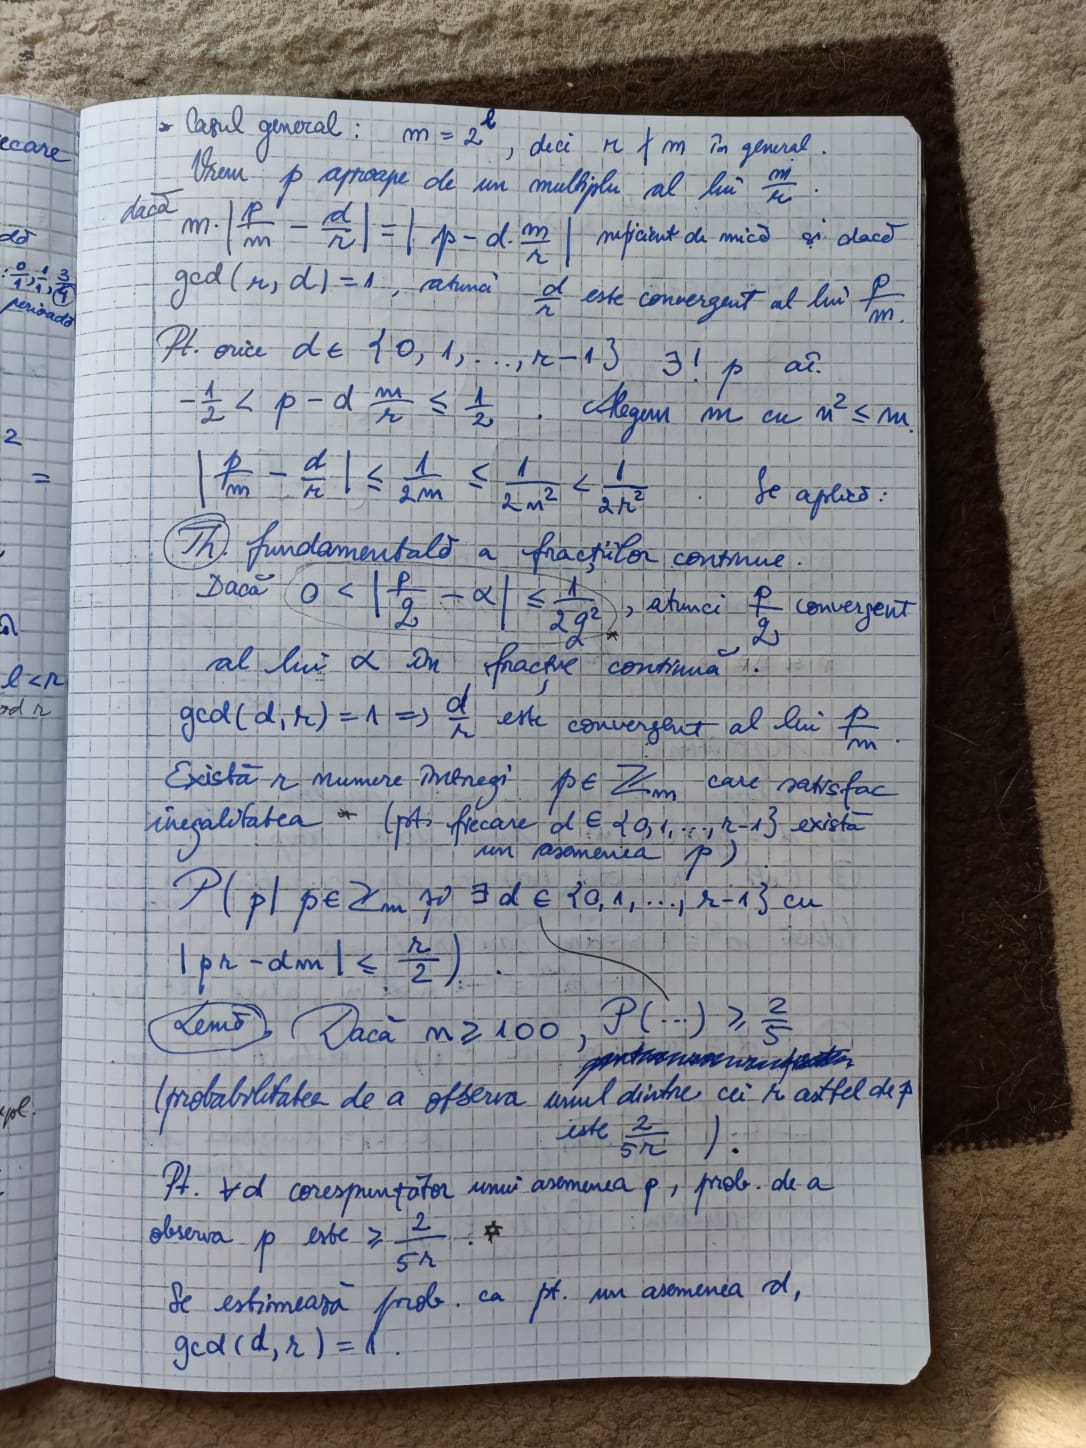 ecare
dă
: 0/1, 1/1, 3/4
perioadă
2
=
l < r
od r
xpl.
* Cazul general : m = 2^l , deci r ∤ m în general .
Vrem p aproape de un multiplu al lui m/r .
dacă m·|p/m − d/r| = |p − d·m/r| suficient de mică și dacă
gcd(r, d) = 1 , atunci d/r este convergent al lui p/m.
Pt. orice d ∈ {0, 1, ..., r−1} ∃! p aî.
−1/2 < p − d m/r ≤ 1/2 . Alegem m cu n² ≤ m.
|p/m − d/r| ≤ 1/2m ≤ 1/2n² < 1/2r² . Se aplică :
Th. fundamentală a fracțiilor continue.
Dacă 0 < |p/q − α| ≤ 1/2q² * , atunci p/q convergent
al lui α în fracție continuă .
gcd(d, r) = 1 => d/r este convergent al lui p/m .
Există r numere întregi p ∈ ℤm care satisfac
inegalitatea * (pt. fiecare d ∈ {0, 1, ..., r−1} există
un asemenea p)
P( p | p ∈ ℤm și ∃ d ∈ {0, 1, ..., r−1} cu
|pr − dm| ≤ r/2 ) .
Lemă. (Dacă n ≥ 100 , P(...) ≥ 2/5
(probabilitatea de a observa unul dintre cei r astfel de p
este 2/5r ) .
Pt. ∀d corespunzător unui asemenea p , prob. de a
observa p este ≥ 2/5r . ✡
Se estimează prob. ca pt. un asemenea d,
gcd(d, r) = 1 .